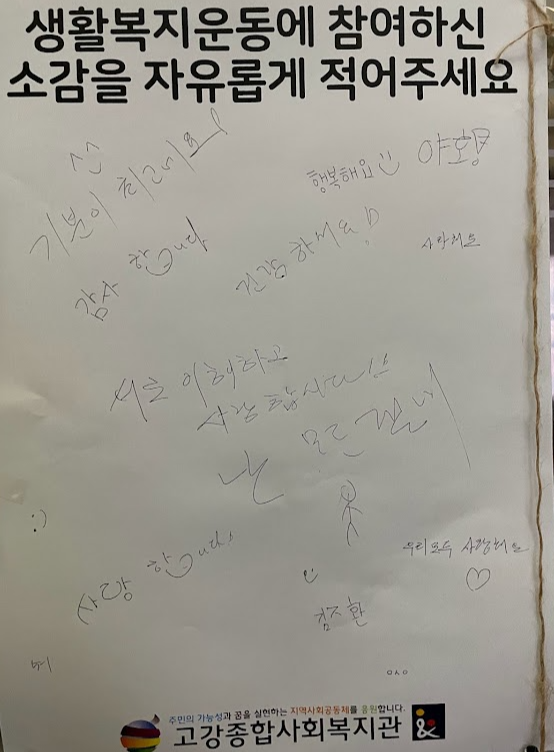 생활복지운동에 참여하신
소감을 자유롭게 적어주세요
^^
기분이 최고에요!
행복해요 :)
야호
감사 합니다
건강 하세요!
사랑해요
서로 이해하고
사랑 합시다!!
난 모르겠네
:)
사랑 합니다!
우리모두 사랑해요
♡
예
ㅇㅅㅇ
주민의 가능성과 꿈을 실현하는 지역사회공동체를 응원합니다.
고강종합사회복지관
&